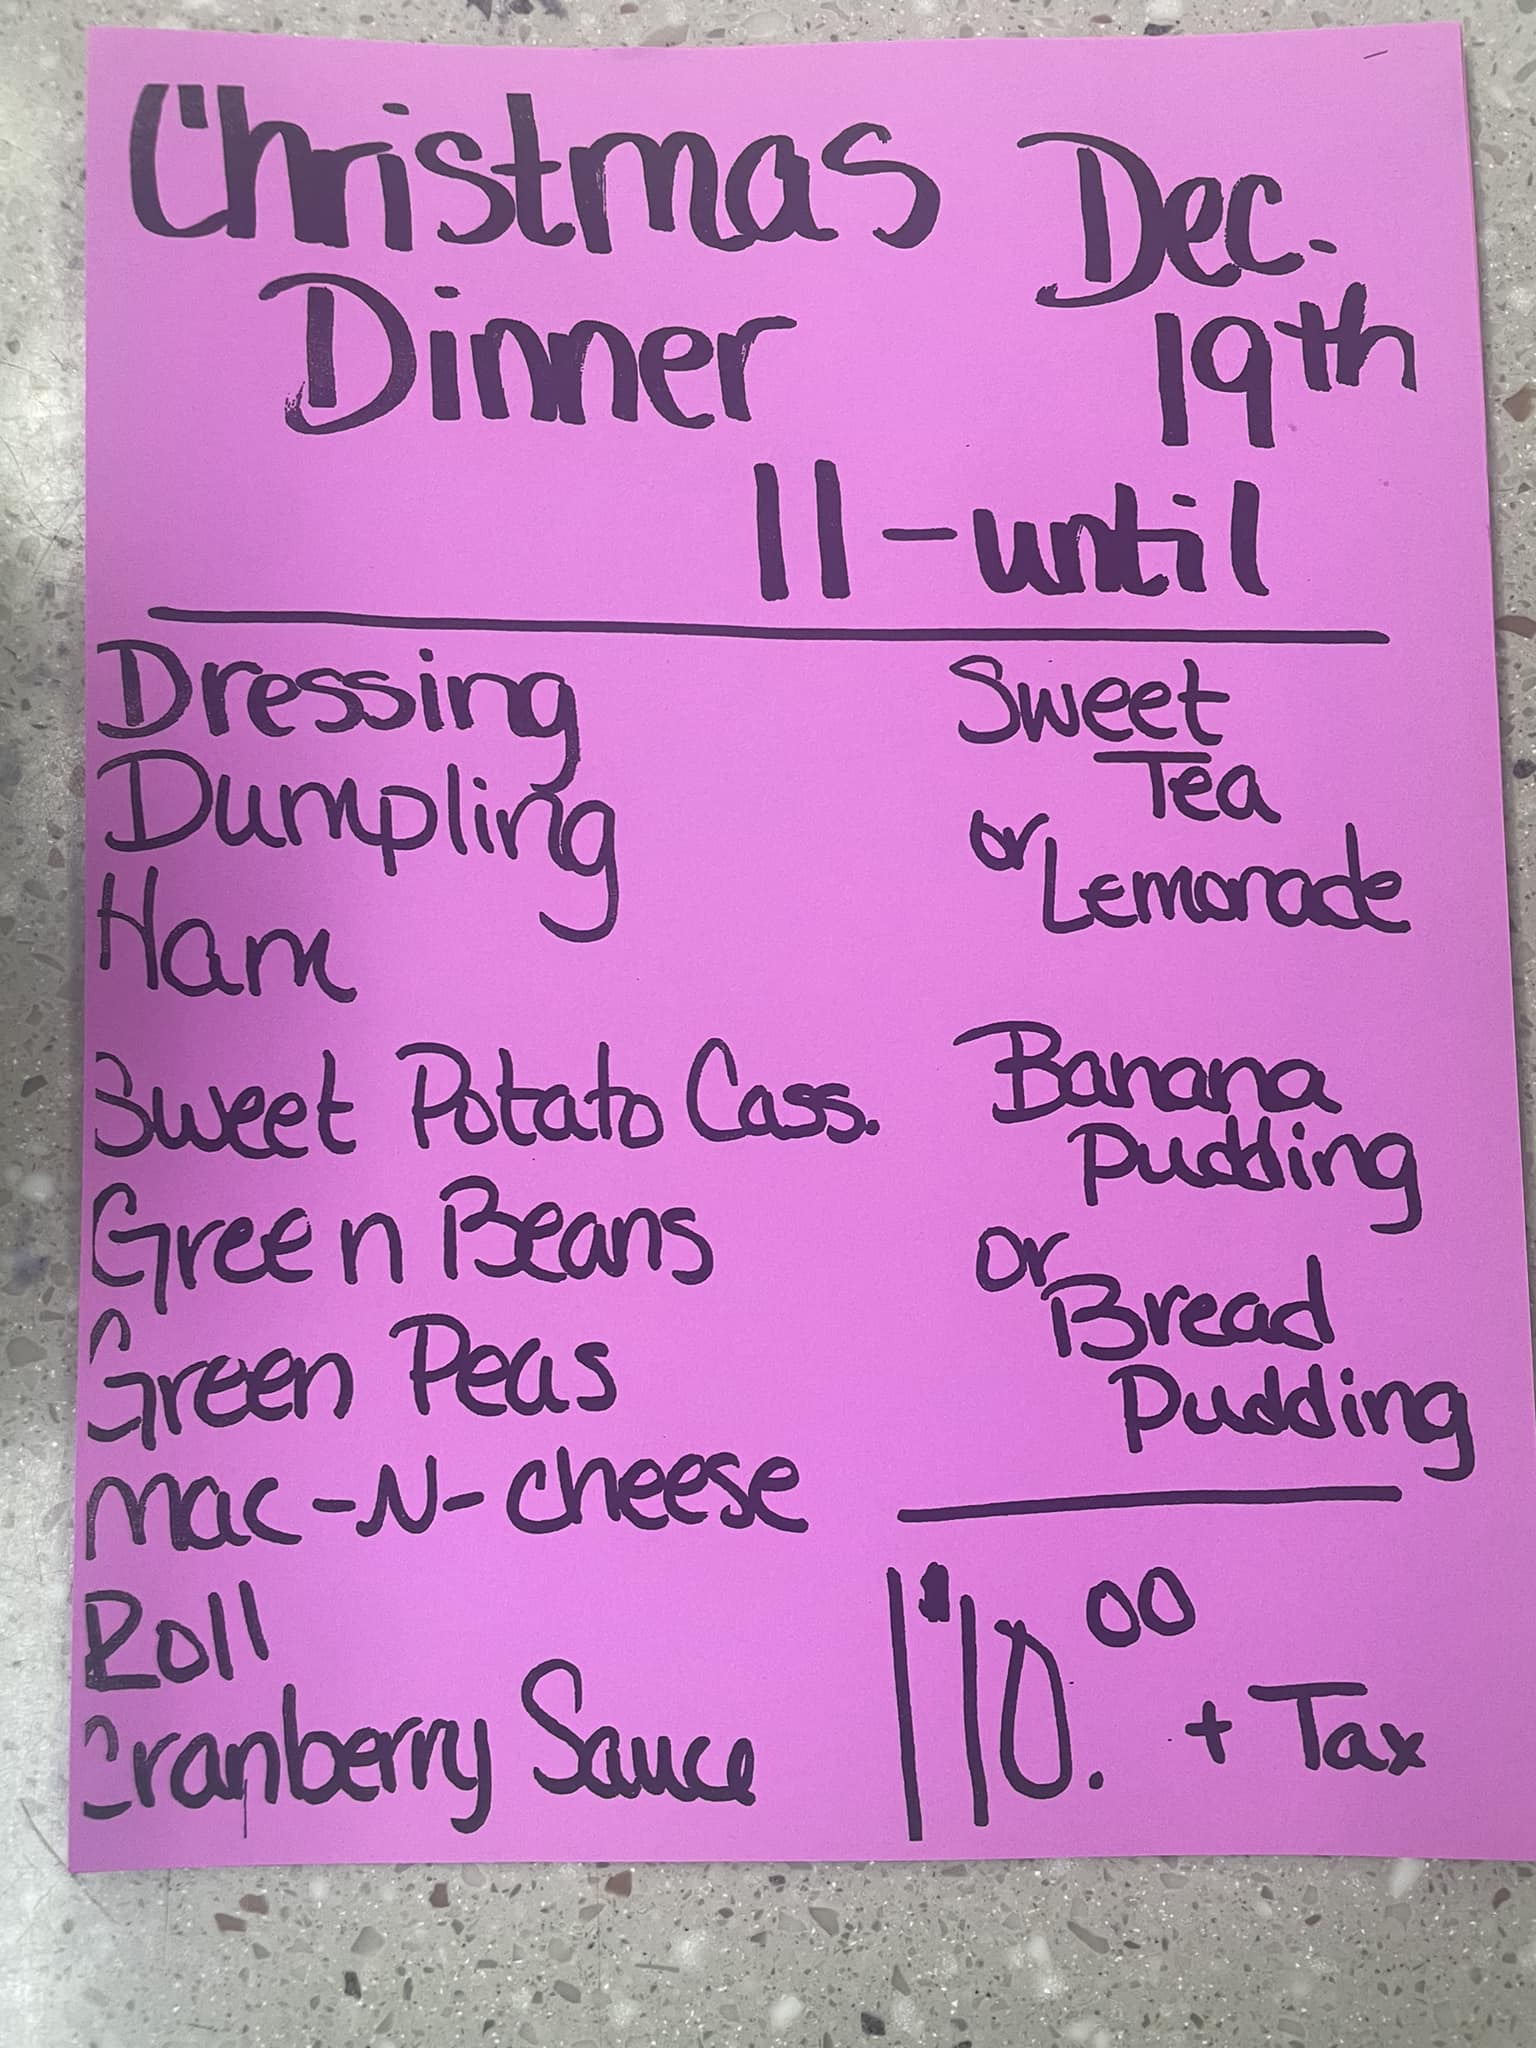 Christmas
Dinner
Dec.
19th
11-until
Dressing
Dumpling
Ham
Sweet Potato Cass.
Green Beans
Green Peas
Mac-N-cheese
Roll
Cranberry Sauce
Sweet
Tea
or Lemonade
Banana
Pudding
or Bread
Pudding
10.00
+ Tax